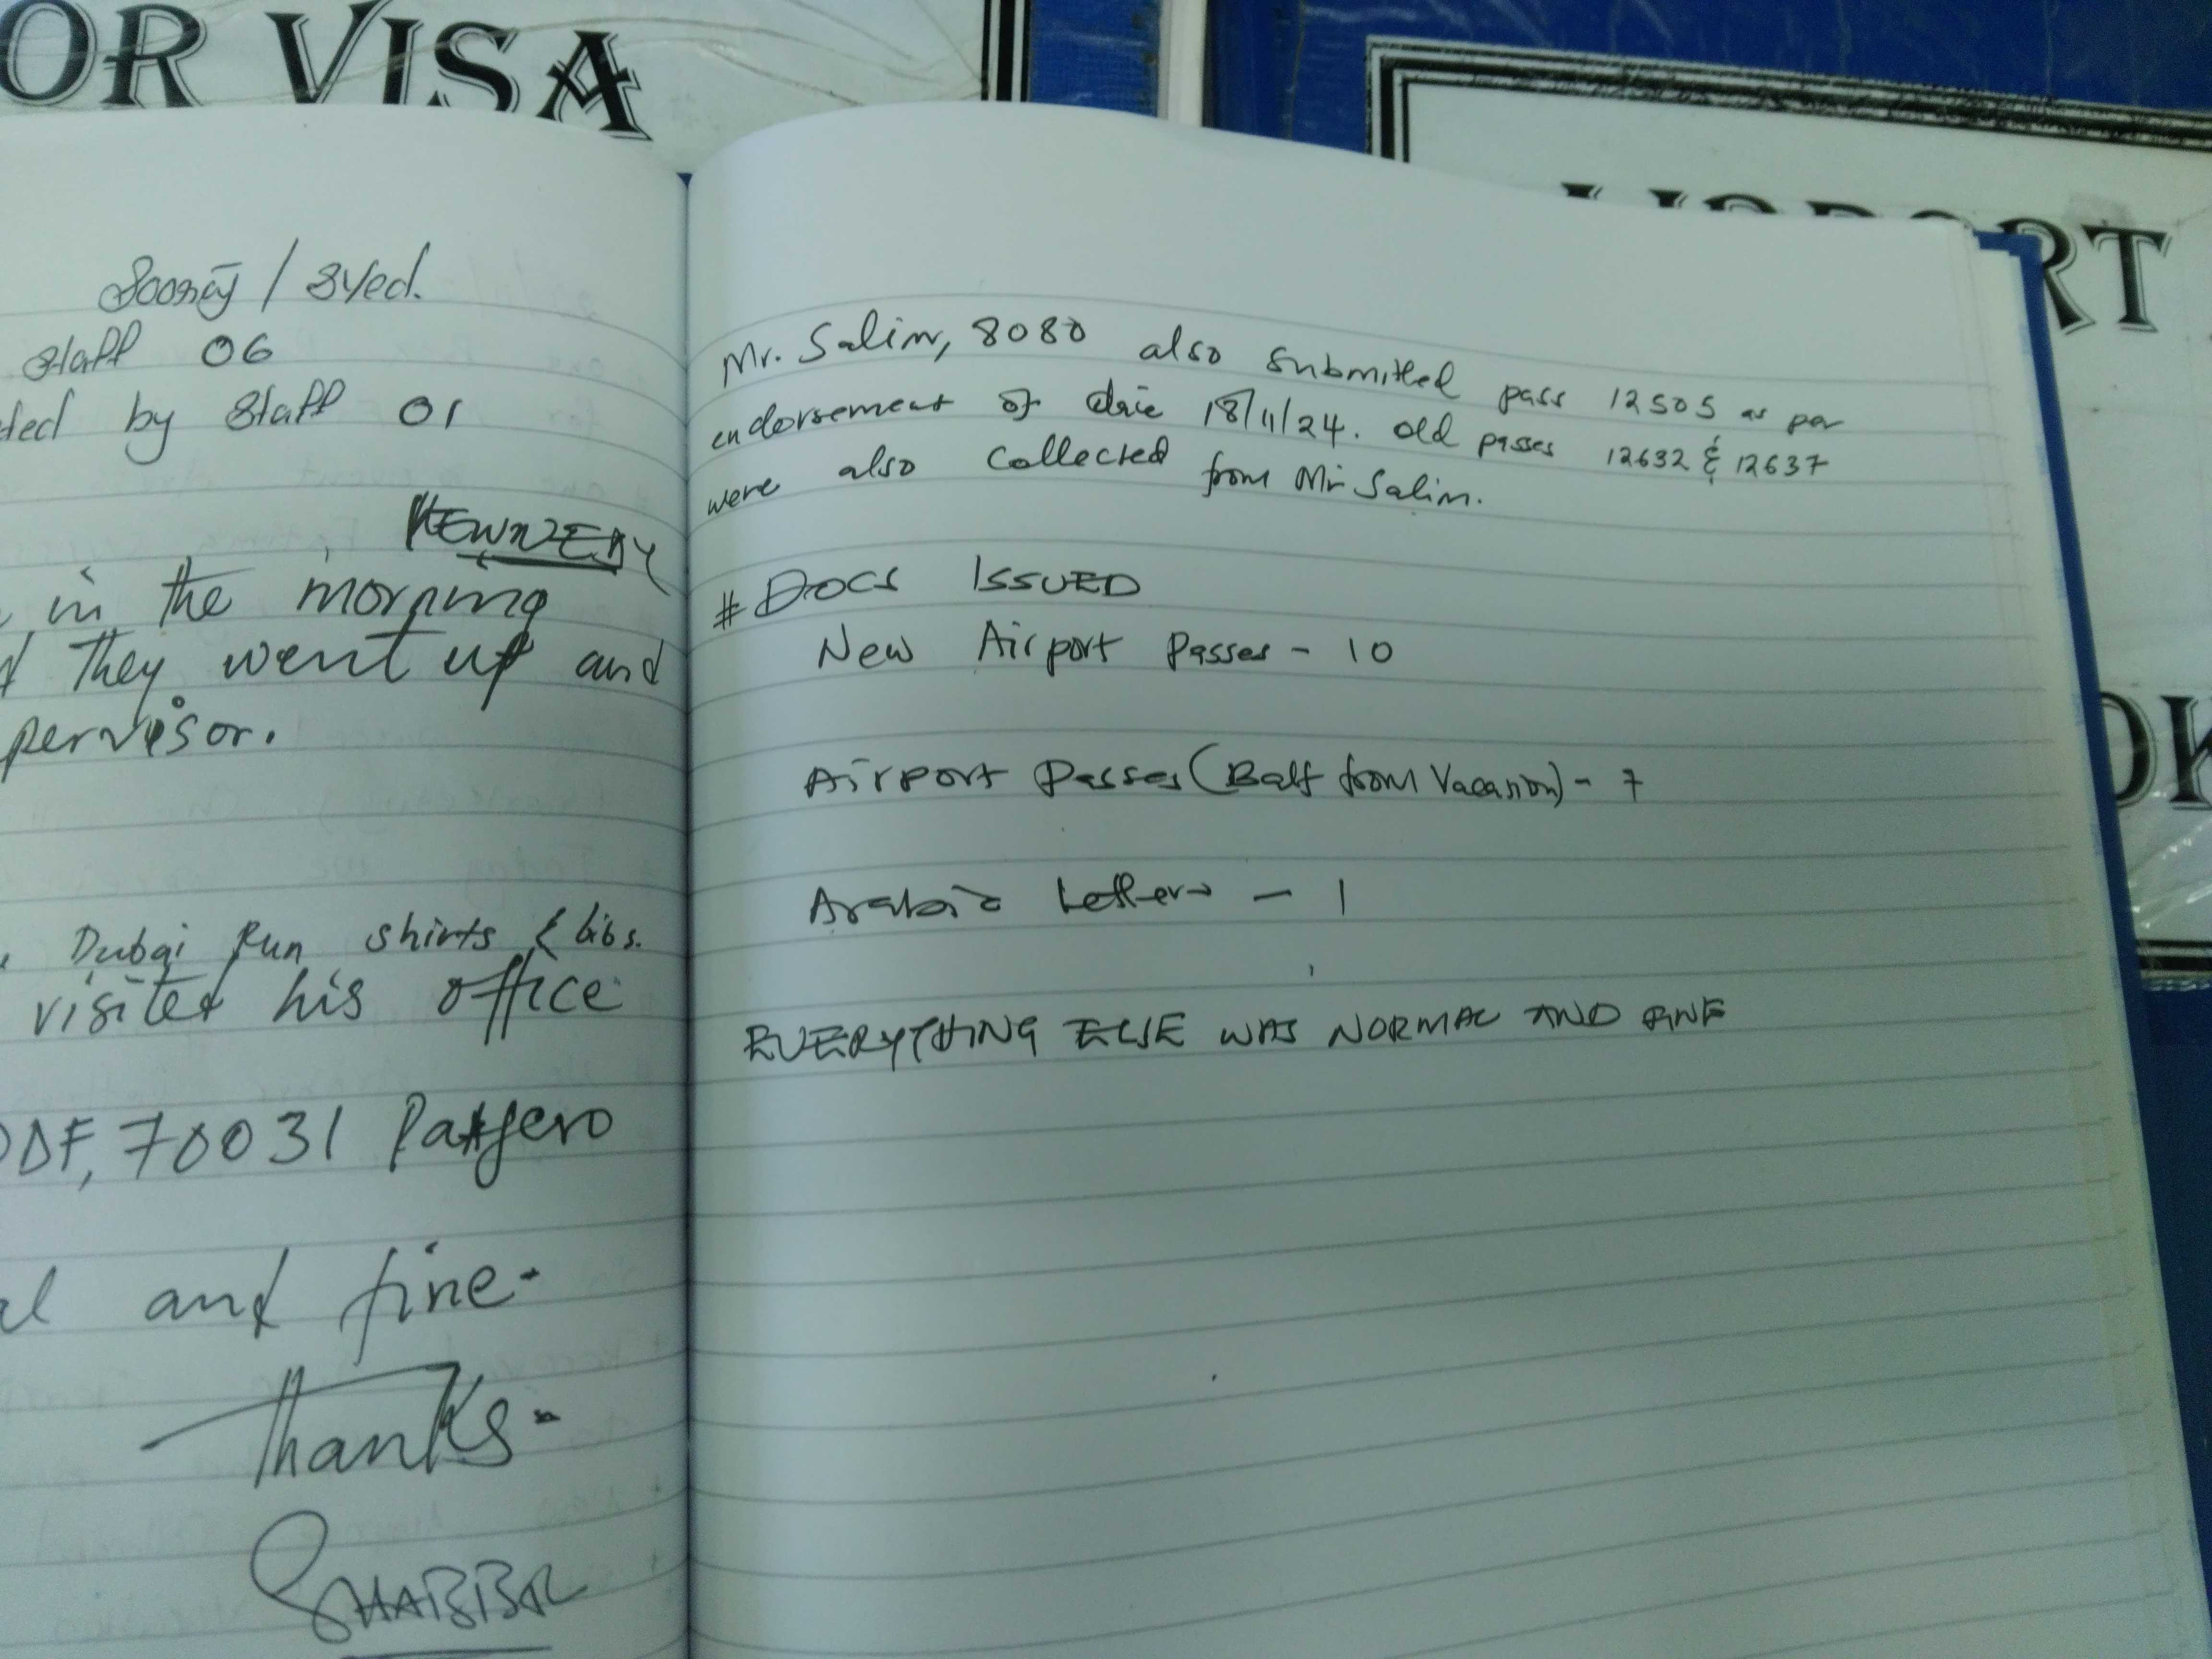 OR VISA
RT
OK
/ Syed.
Staff 06
ted by Staff 01
KEWNEDY
in the morning
They went up and
pervisor.
Dubai Run shirts & bibs.
visited his office
DDF, 70031 Pajero
al and fine.
Thanks.
SHABBIR
Mr. Salim, 8080 also submitted pass 12505 as per
endorsement of 18/11/24. Old passes 12632 & 12637
were also collected from Mr Salim.
# DOCS ISSUED
New Airport Passes - 10
Airport Passes (Balf from Vacation) - 7
Arabic Letters - 1
EVERYTHING ELSE WAS NORMAL AND FINE